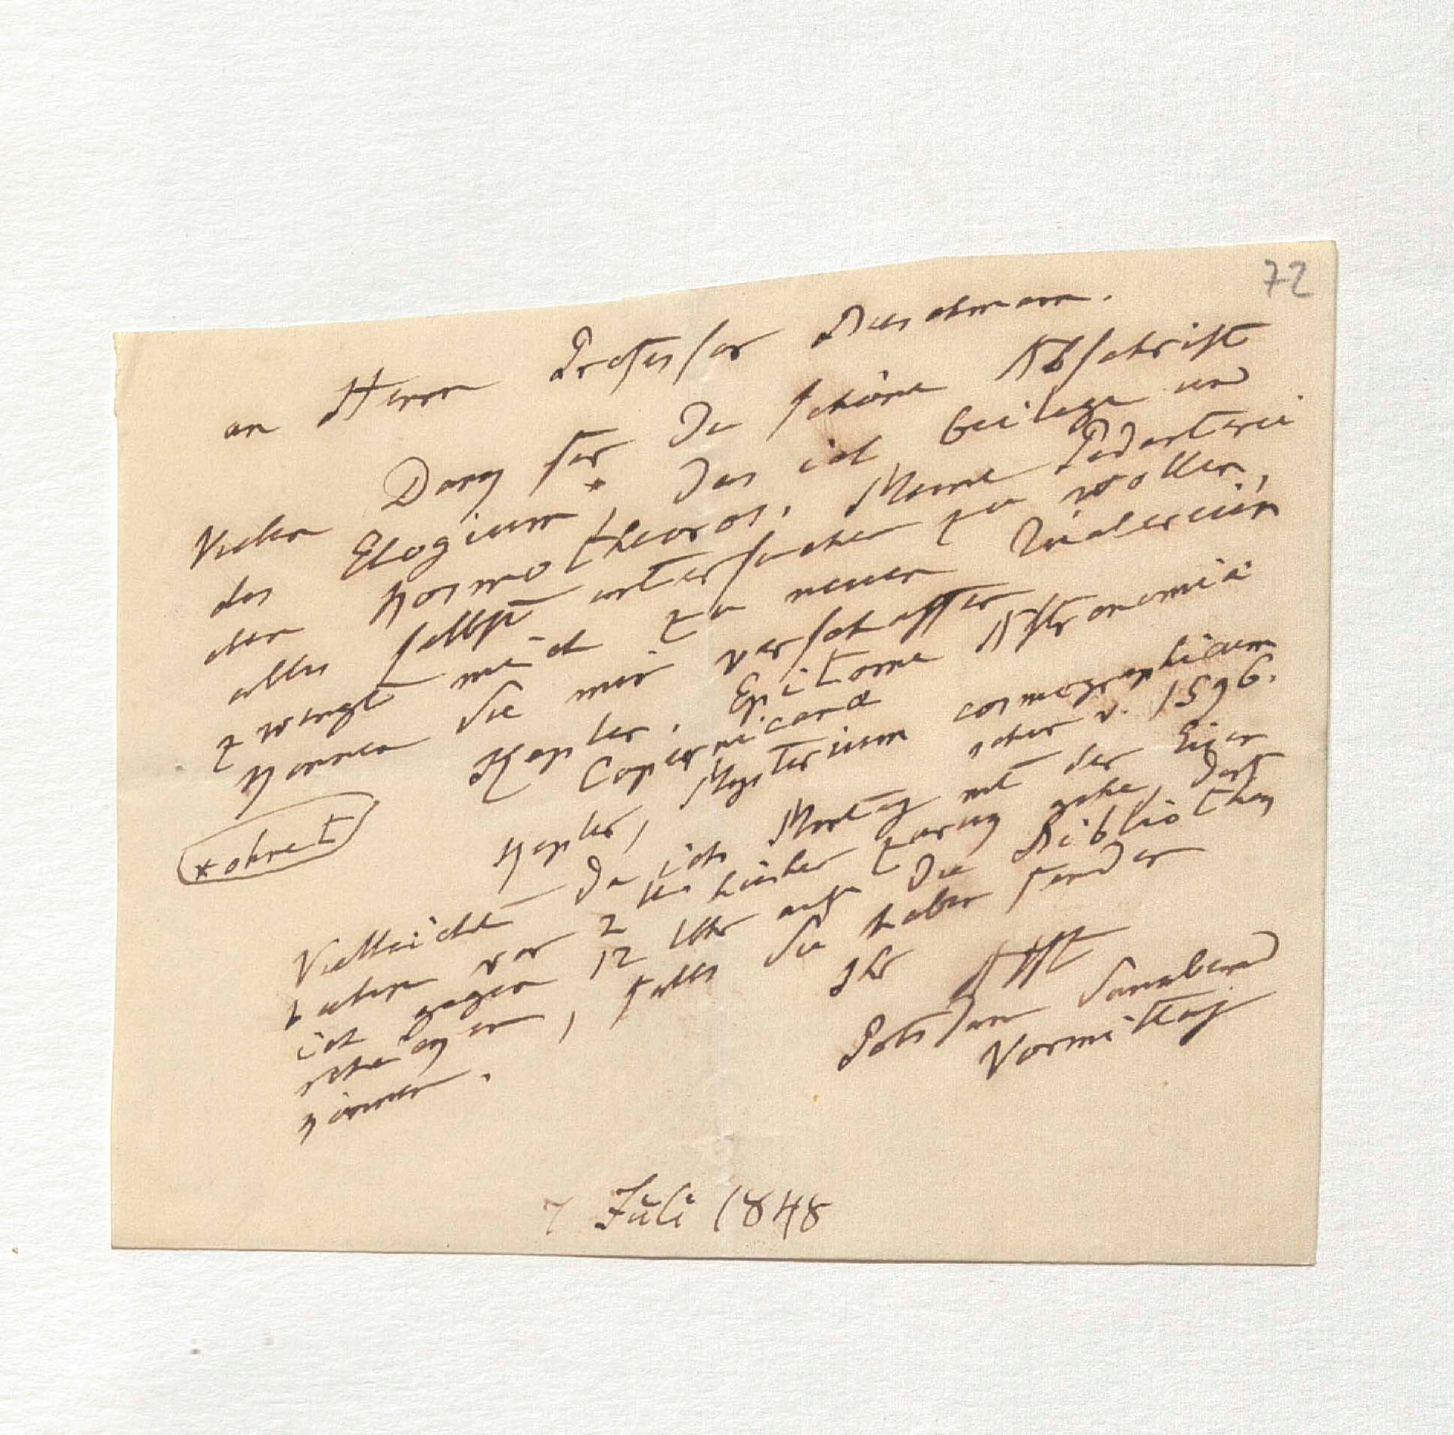 72
an Herrn Professor Buschmann.
Vielen Dank für die schöne Abschrift
des Elogium*, das ich beilege und
den Kosmotheoros. Meine Pedanterei
alles selbst untersuchen zu wollen,
zwingt mich zu neuen Quälereien
Können Sie mir verschaffen
Kepler. Epitome Astronomiæ
Copernicanæ
Kepler, Mysterium cosmographicum
schon v. 1596.
* ohne t
Vielleicht da ich Montag mit der Eisen
bahn vor 2 Uhr hieher zurük gehe, darf
ich gegen 12 Uhr auf die Bibliothek
schikken, falls Sie haben finden
können.
Ihr AHt
Potsdam Sonnabend
Vormittag
7 Juli 1848